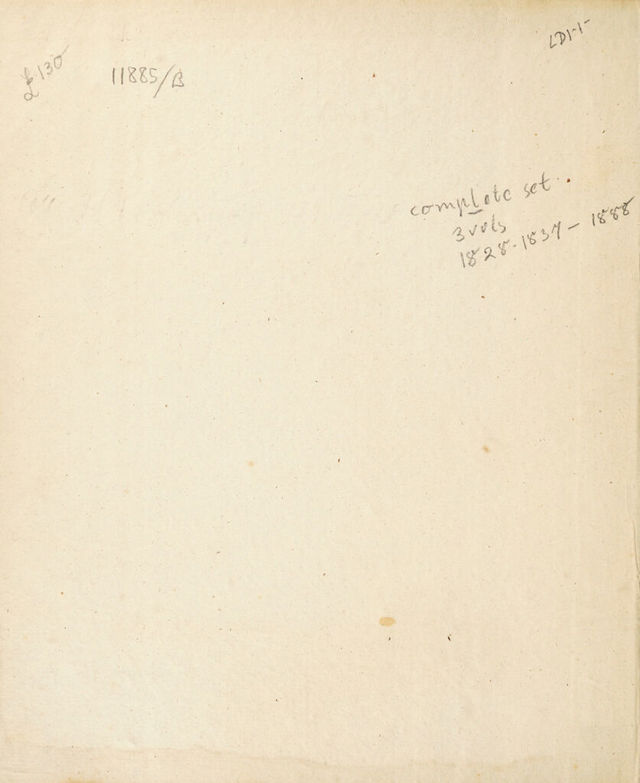 £130
11885/B
LD1-1-
complete set.
3 vols
1828-1837-1888